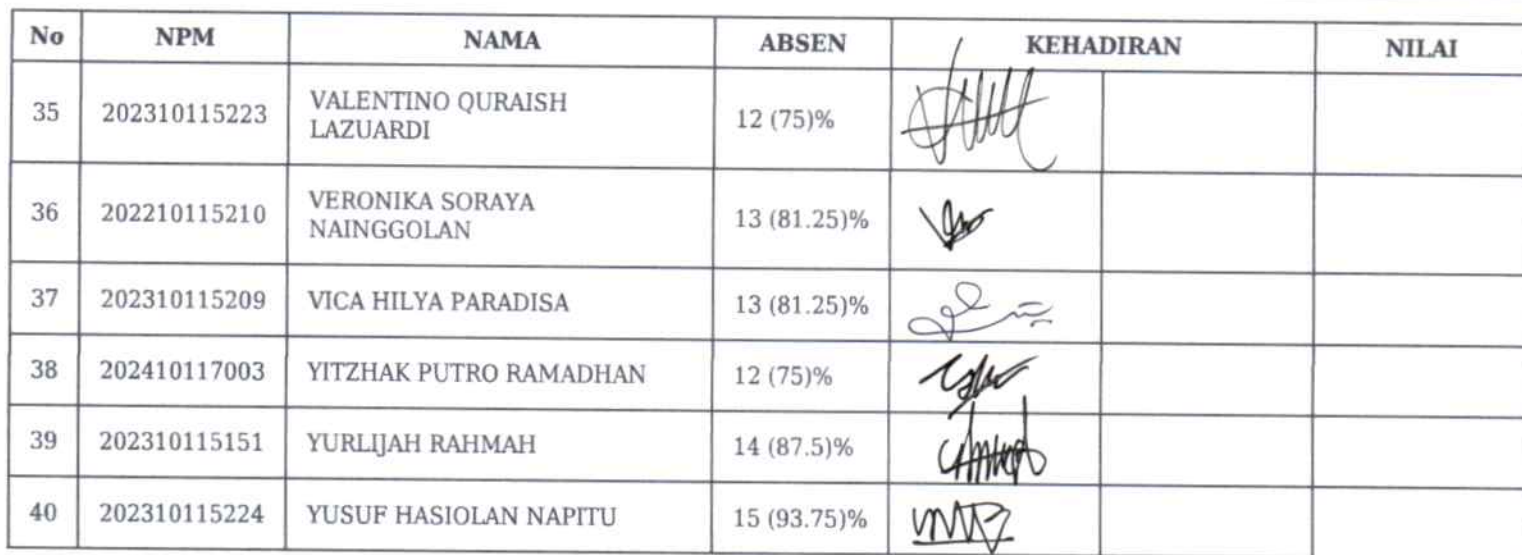 No NPM NAMA ABSEN KEHADIRAN NILAI
35 202310115223 VALENTINO QURAISH LAZUARDI 12 (75)%
36 202210115210 VERONIKA SORAYA NAINGGOLAN 13 (81.25)%
37 202310115209 VICA HILYA PARADISA 13 (81.25)%
38 202410117003 YITZHAK PUTRO RAMADHAN 12 (75)%
39 202310115151 YURLIJAH RAHMAH 14 (87.5)%
40 202310115224 YUSUF HASIOLAN NAPITU 15 (93.75)%